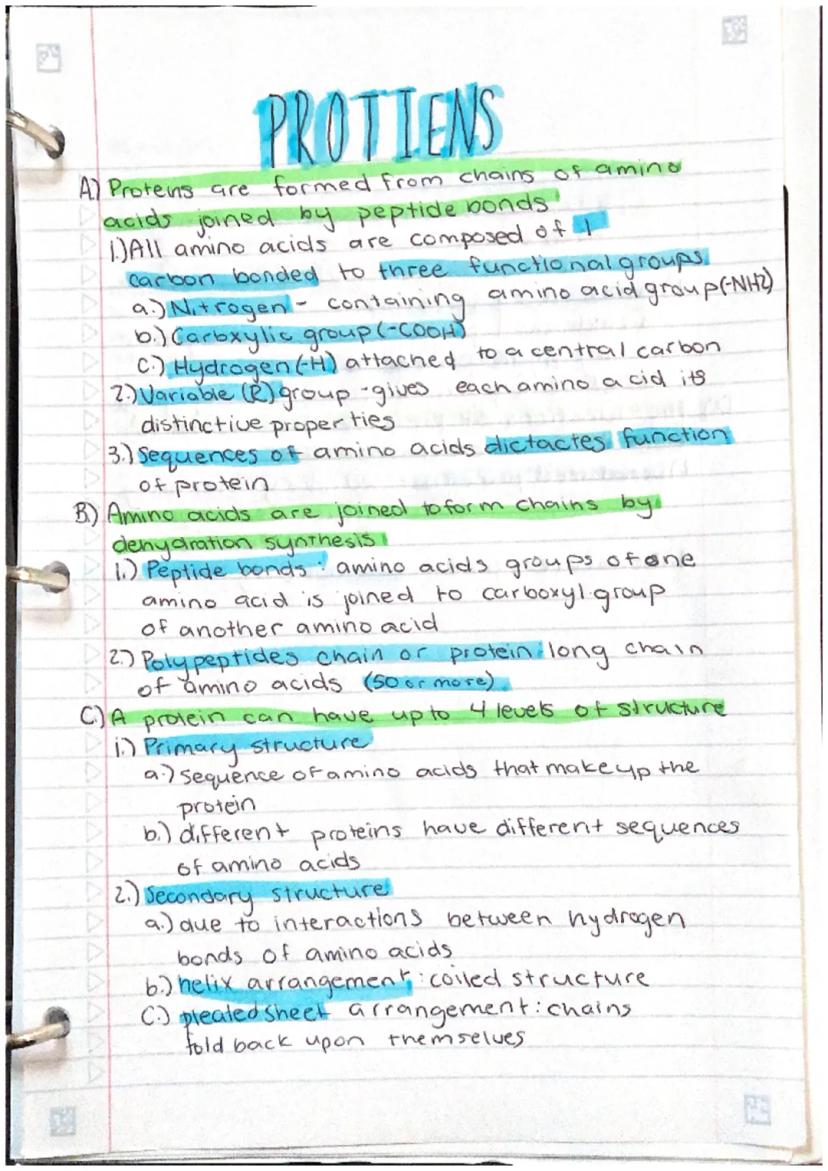 PROTIENS
A.) Proteins are formed from chains of amino
acids joined by peptide bonds
1.) All amino acids are composed of 1
carbon bonded to three functional groups.
a.) Nitrogen - containing amino acid group (-NH2)
b.) Carbxylic group (-COOH)
c.) Hydrogen (-H) attached to a central carbon
2.) Variable (R) group - gives each amino acid its
distinctive properties
3.) Sequences of amino acids dictactes function
of protein
B.) Amino acids are joined to form chains by
denydration synthesis
1.) Peptide bonds: amino acids groups of one
amino acid is joined to carboxyl group
of another amino acid
2.) Polypeptides chain or protein: long chain
of amino acids (50 or more)
C.) A protein can have up to 4 levels of structure
1.) Primary structure
a.) sequence of amino acids that make up the
protein
b.) different proteins have different sequences
of amino acids
2.) Secondary structure
a.) due to interactions between hydrogen
bonds of amino acids
b.) helix arrangement: coiled structure
c.) pleated sheet arrangement: chains
fold back upon themselves